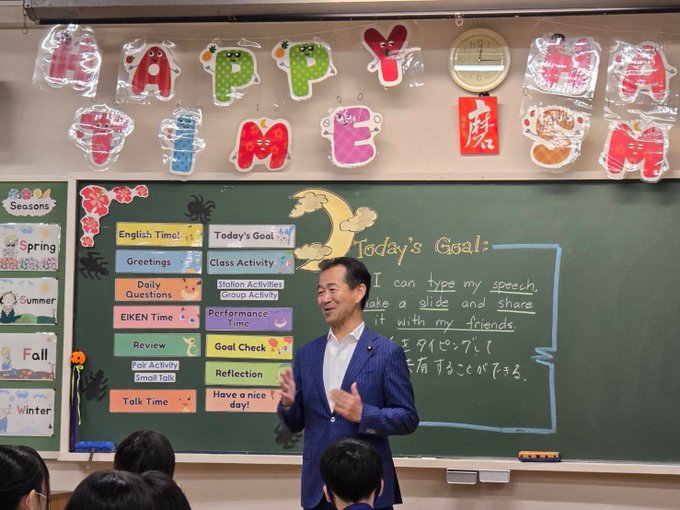 HAPPY
TIME
磨
HA
SM
Seasons
Spring
Summer
Fall
Winter
English Time!
Greetings
Daily Questions
EIKEN Time
Review
Pair Activity
Small Talk
Talk Time
Today's Goal
Class Activity
Station Activities
Group Activity
Performance Time
Goal Check
Reflection
Have a nice day!
Today's Goal:
I can type my speech,
ake a slide and share
it with my friends.
をタイピングして
有することができる。